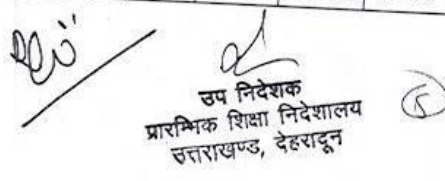 उप निदेशक
प्रारम्भिक शिक्षा निदेशालय
उत्तराखण्ड, देहरादून